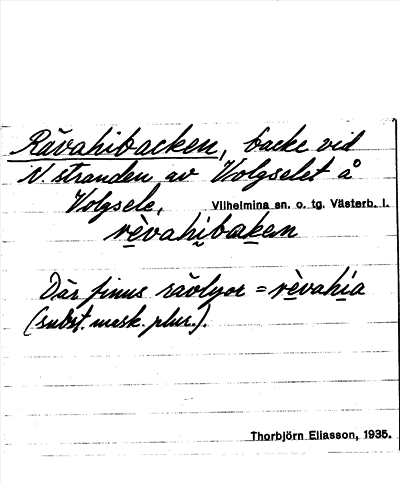 Rävahibacken, backe vid
N. stranden av Volgselet å
Volgsele, Vilhelmina sn. o. tg. Västerb. l.
rèvahibaken
Där finns rävlyor = rèvahia
(subst. mask. plur.).
Thorbjörn Eliasson, 1935.